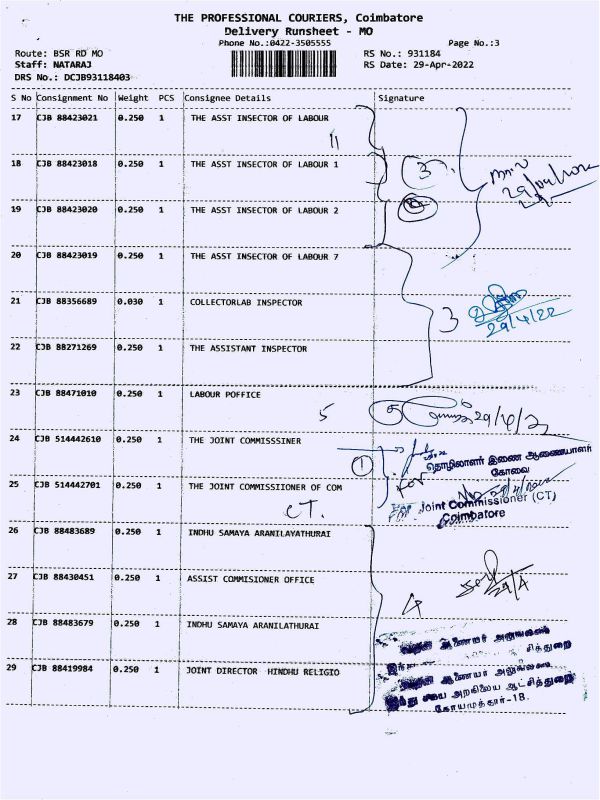 THE PROFESSIONAL COURIERS, Coimbatore
Delivery Runsheet - MO
Phone No.:0422-3505555
Page No.:3
Route: BSR RD MO
RS No.: 931184
Staff: NATARAJ
RS Date: 29-Apr-2022
DRS No.: DCJB93118403
S No Consignment No Weight PCS Consignee Details Signature
17 CJB 88423021 0.250 1 THE ASST INSECTOR OF LABOUR
18 CJB 88423018 0.250 1 THE ASST INSECTOR OF LABOUR 1
3
19 CJB 88423020 0.250 1 THE ASST INSECTOR OF LABOUR 2
20 CJB 88423019 0.250 1 THE ASST INSECTOR OF LABOUR 7
21 CJB 88356689 0.030 1 COLLECTORLAB INSPECTOR
3
29/4/22
22 CJB 88271269 0.250 1 THE ASSISTANT INSPECTOR
23 CJB 88471010 0.250 1 LABOUR POFFICE
5
24 CJB 514442610 0.250 1 THE JOINT COMMISSSINER
1
தொழிலாளர் இணை ஆணையாளர்
கோவை
25 CJB 514442701 0.250 1 THE JOINT COMMISSIONER OF COM
CT.
For
Joint Commissioner (CT)
Coimbatore
26 CJB 88483689 0.250 1 INDHU SAMAYA ARANILAYATHURAI
27 CJB 88430451 0.250 1 ASSIST COMMISIONER OFFICE
4
29/4
28 CJB 88483679 0.250 1 INDHU SAMAYA ARANILATHURAI
ஆணையர் அலுவலகம்
29 CJB 88419984 0.250 1 JOINT DIRECTOR HINDHU RELIGIO
ஆணையர் அலுவலகம்
அறநிலைய ஆட்சித்துறை
கோயமுத்தூர்-18.